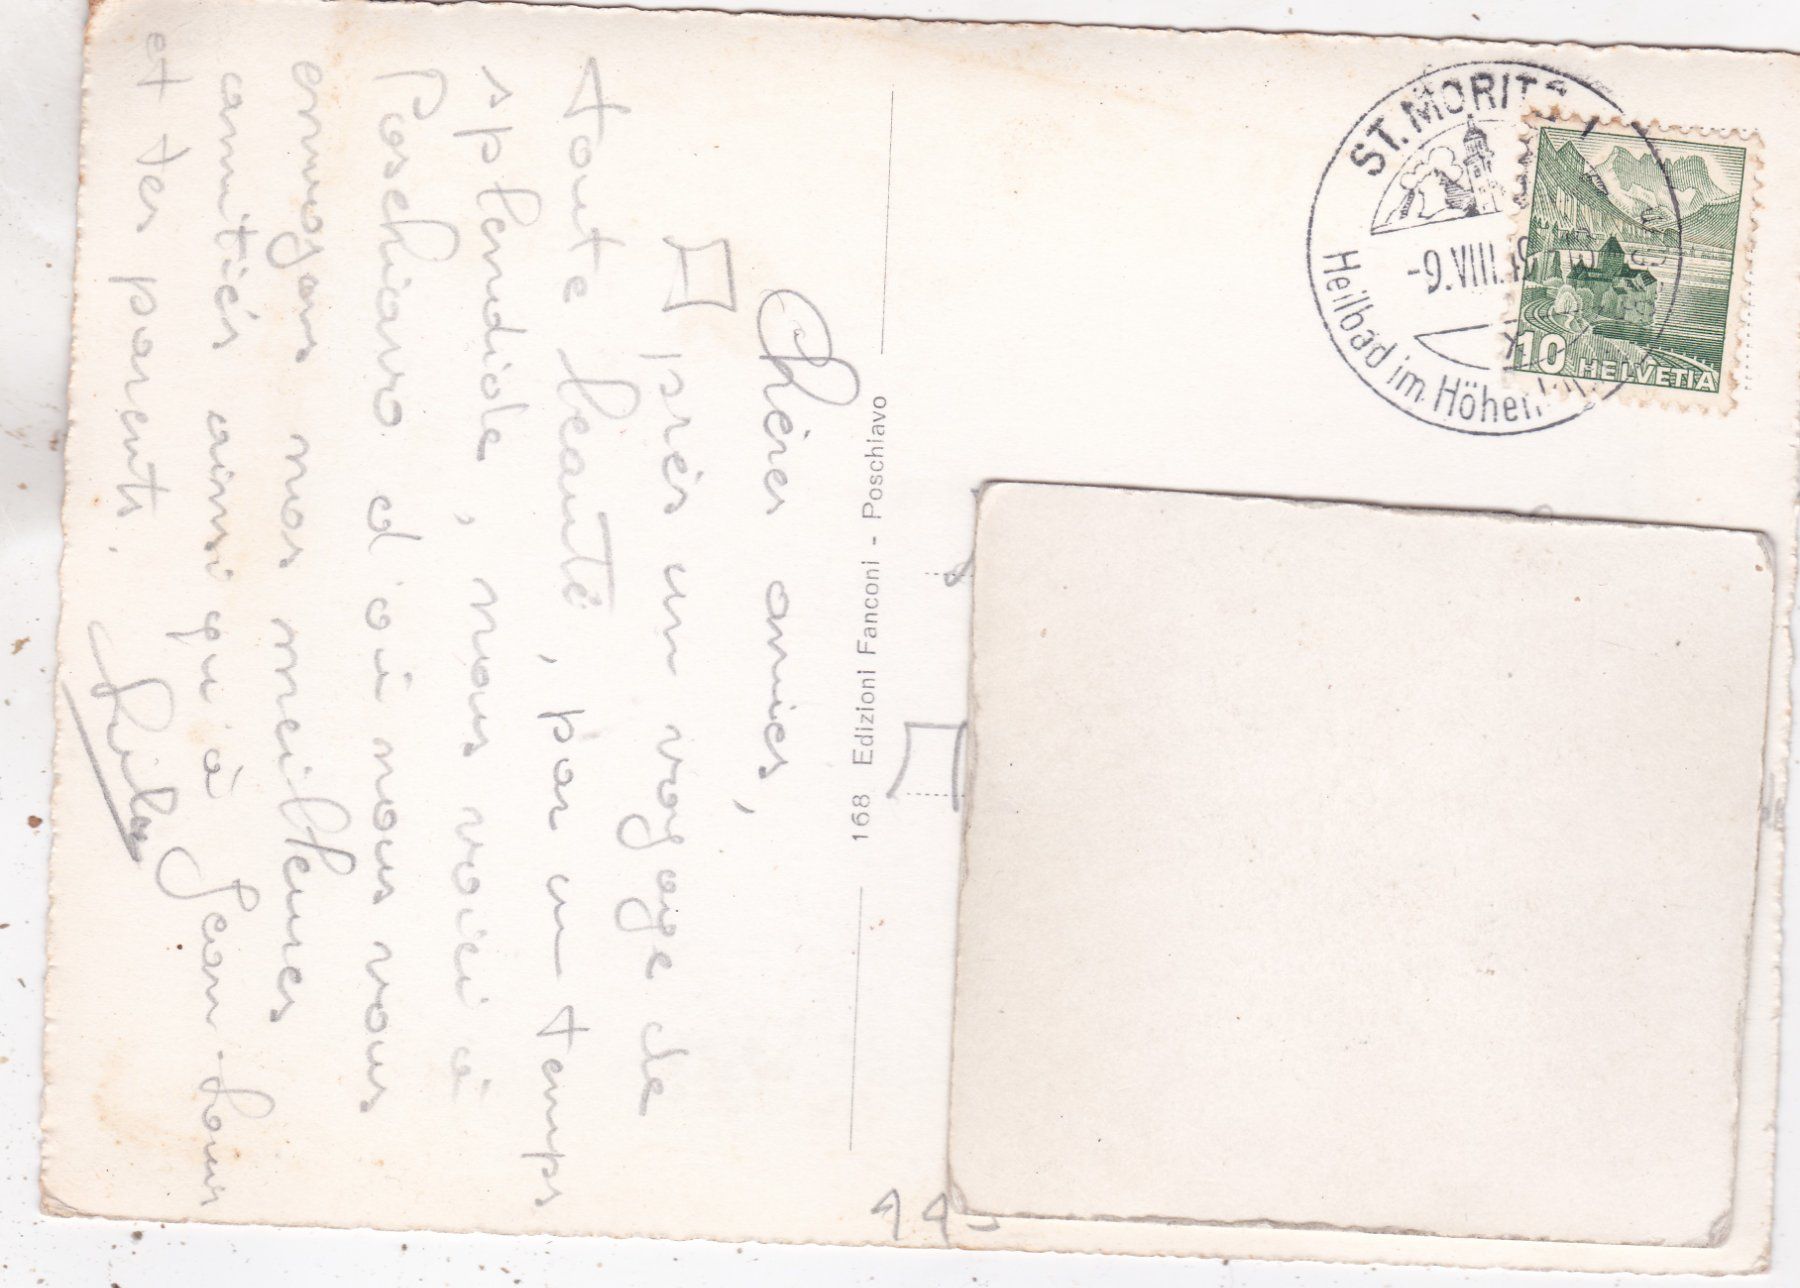 Chères amies,
Après un voyage de
toute beauté, par un temps
splendide, nous voici à
Poschiavo d'où nous vous
envoyons nos meilleures
amitiés ainsi qu'à Jean-Louis
et tes parents.
168 Edizioni Fanconi - Poschiavo
ST. MORITZ 1
-9.VIII.
Heilbad im
10 HELVETIA